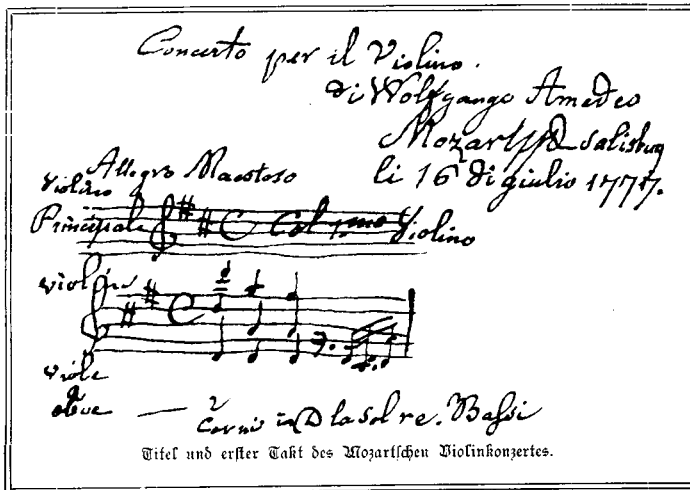 Concerto per il Violino.
di Wolfgango Amedeo
Mozart Salisburg
li 16 di giulio 1777.
Allegro Maestoso
Violino
Principale Col 1.mo Violino
violini
viole
2 oboe — 2 Corni in D la sol re. Bassi
Titel und erster Takt des Mozartschen Violinkonzertes.